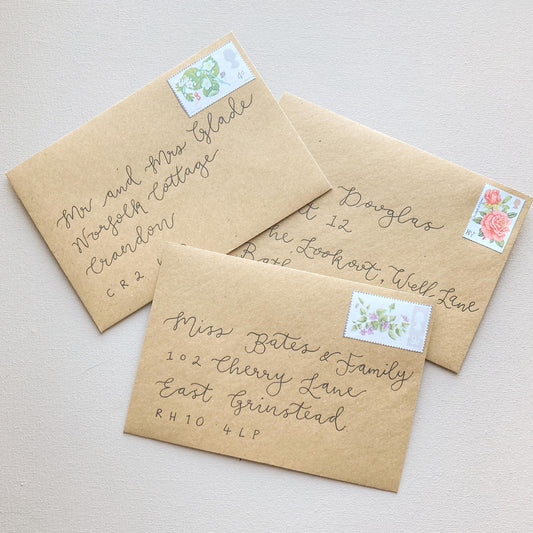 Mr and Mrs Glade
Norfolk Cottage
Crandon
CR2
Douglas
12
The Lookout, Well Lane
Bath
Miss Bates & Family
102 Cherry Lane
East Grinstead
RH10 4LP